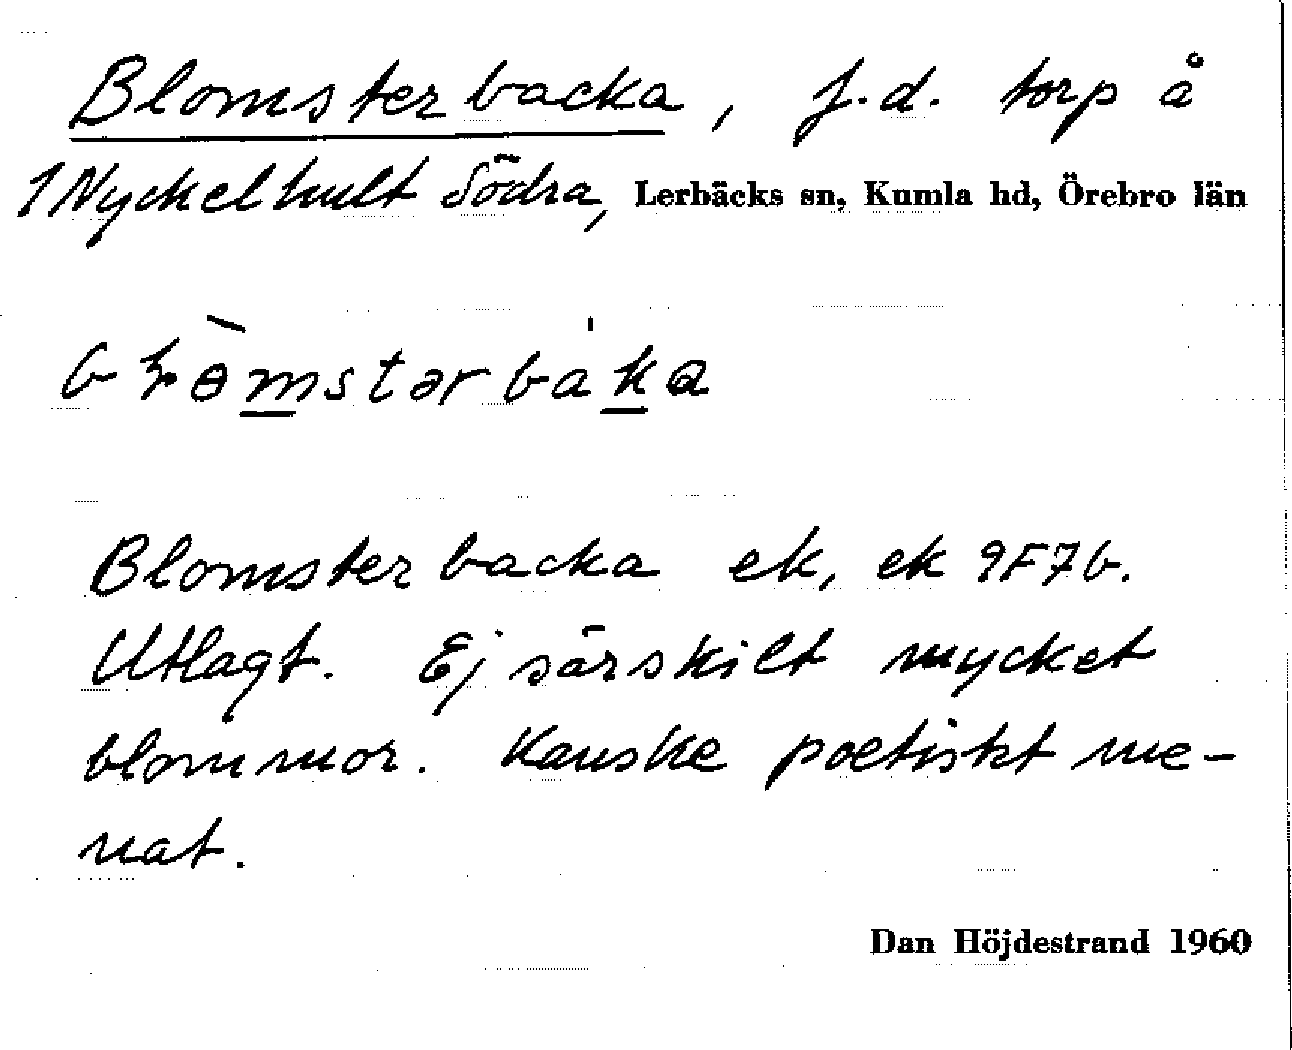 Blomsterbacka, f.d. torp å
1 Nyckelhult Södra, Lerbäcks sn, Kumla hd, Örebro län
Blomsterbacka ek, ek 9F7b.
Utlagt. Ej särskilt mycket
blommor. Kanske poetiskt me-
nat.
Dan Höjdestrand 1960